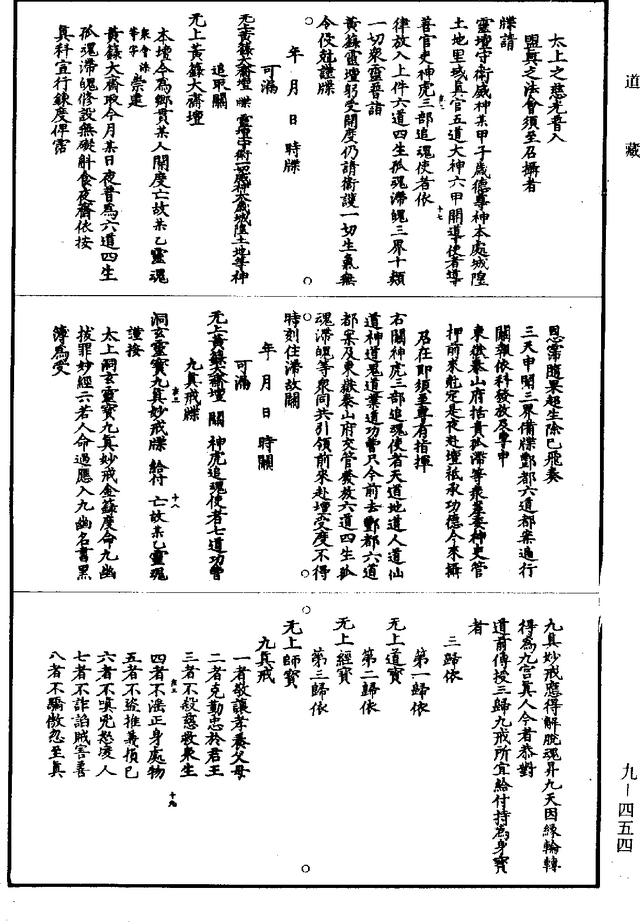 道藏
太上之慈光普入
盟真之法會須至召攝者
牒請
靈壇守衛威神某甲子歲德尊神本處城隍
土地里域真官五道大神六甲開導使者導
普官史神虎三部追魂使者依 十七
律放入上件六道四生孤魂滯魄三界十類
一切衆靈普詣
黃籙靈壇躬受開度仍請衛護一切生氣無
令侵尅謹牒
年 月 日 時牒
可漏
无上黃籙大齋壇 牒 靈壇守衛威神太歲城隍土地等神
追取關
无上黃籙大齋壇
本壇今為鄉貫某人開度亡故某乙靈魂
崇建
黃籙大齋取今月某日夜普為六道四生
孤魂滯魄修設無礙斛食夜齋依按
真科宣行鍊度俾霑
恩霈隨果超生除已飛奏
三天申聞三界備牒酆都六道都案遍行
關報依科發放及專申
東嶽泰山府括責孤滯等衆差委神吏管
押前來尅定是夜赴壇祗承功德今來攝
召在即須至專有指揮
右關神虎三部追魂使者天道地道人道仙
道神道鬼道業道功曹只今前去酆都六道
都案及東嶽泰山府交管發放六道四生孤
魂滯魄等衆同共引領前來赴壇受度不得
時刻住滯故關
年 月 日 時關
可漏
无上黃籙大齋壇 關 神虎追魂使者七道功曹
九真戒牒
洞玄靈寶九真妙戒牒 給付 亡故某乙靈魂
謹按 十八
太上洞玄靈寶九真妙戒金籙度命九幽
拔罪妙經云若人命過應入九幽名書黑
簿為受
九真妙戒應得解脫魂昇九天因緣輪轉
得為九宮真人今者恭對
道前傳授三歸九戒所宜給付持為身寶
者
三歸依
第一歸依
无上道寶
第二歸依
无上經寶
第三歸依
无上師寶
九真戒
一者敬讓孝養父母
二者克勤忠於君王
三者不殺慈救衆生
四者不淫正身處物 十九
五者不盜推義損己
六者不嗔兇怒凌人
七者不詐諂賊害善
八者不驕傲忽至真
九－四五四